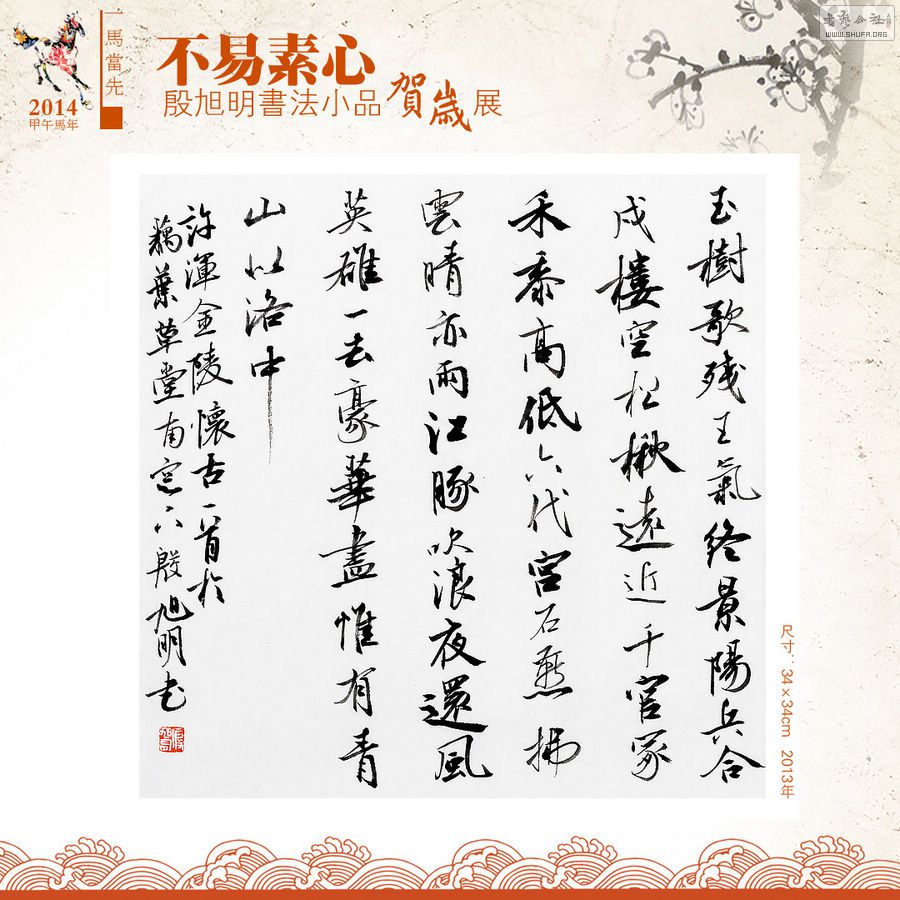 一馬當先
2014
甲午馬年
不易素心
殷旭明書法小品賀歲展
書藝公社
WWW.SHUFA.ORG
玉樹歌残王氣終景陽兵合
戍樓空松楸遠近千官冢
禾黍高低六代宮石燕拂
雲晴亦雨江豚吹浪夜還風
英雄一去豪華盡惟有青
山似洛中
許渾金陵懷古一首於
藕葉草堂南窗下殷旭明書
尺寸：34×34cm 2013年